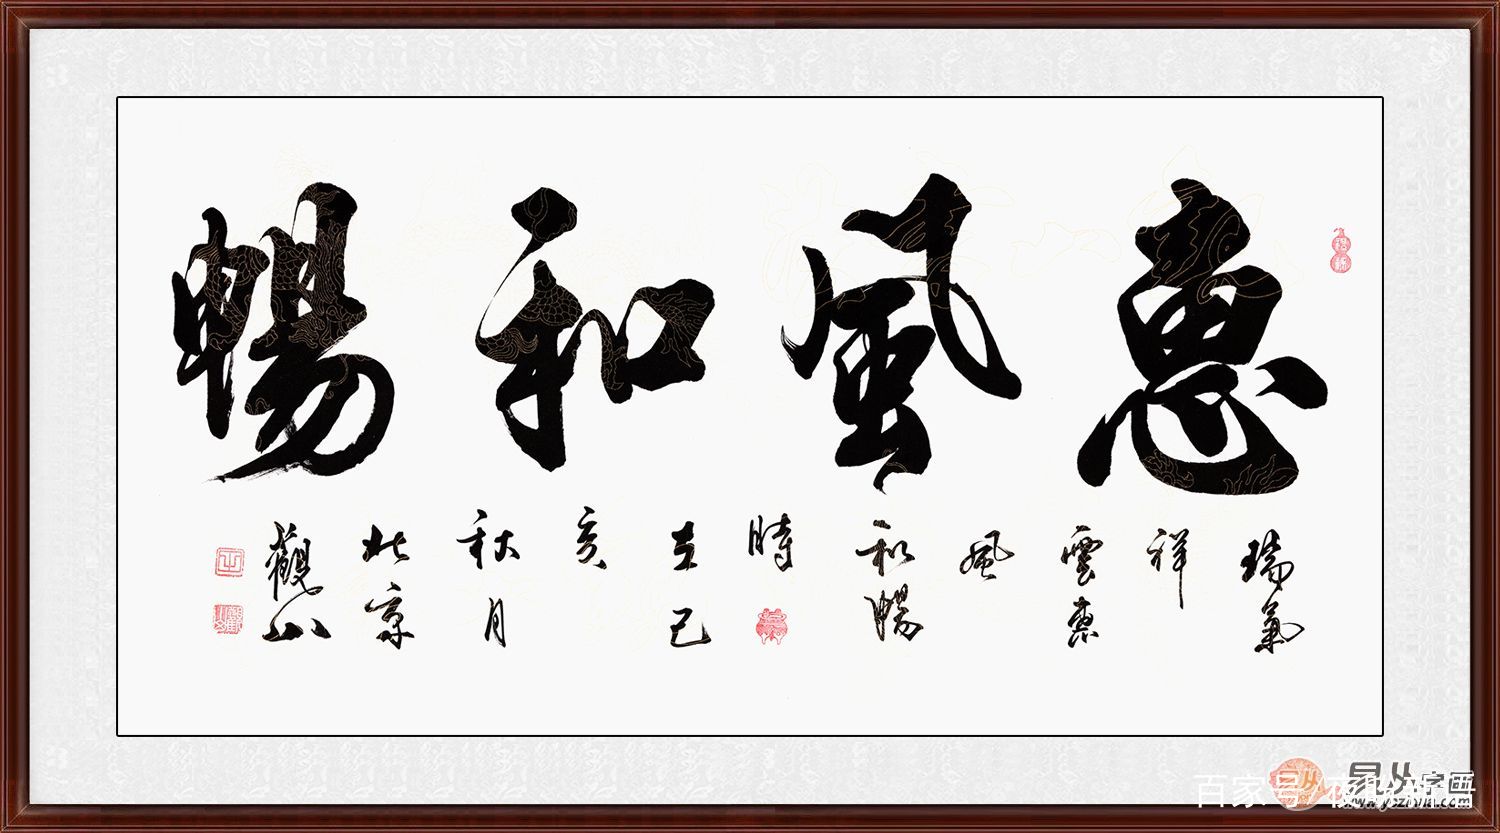 惠風和暢
瑞氣
祥
雲惠
風
和暢
時
在己
亥
秋月
北京
觀山
百家号/
www.yczihua.com